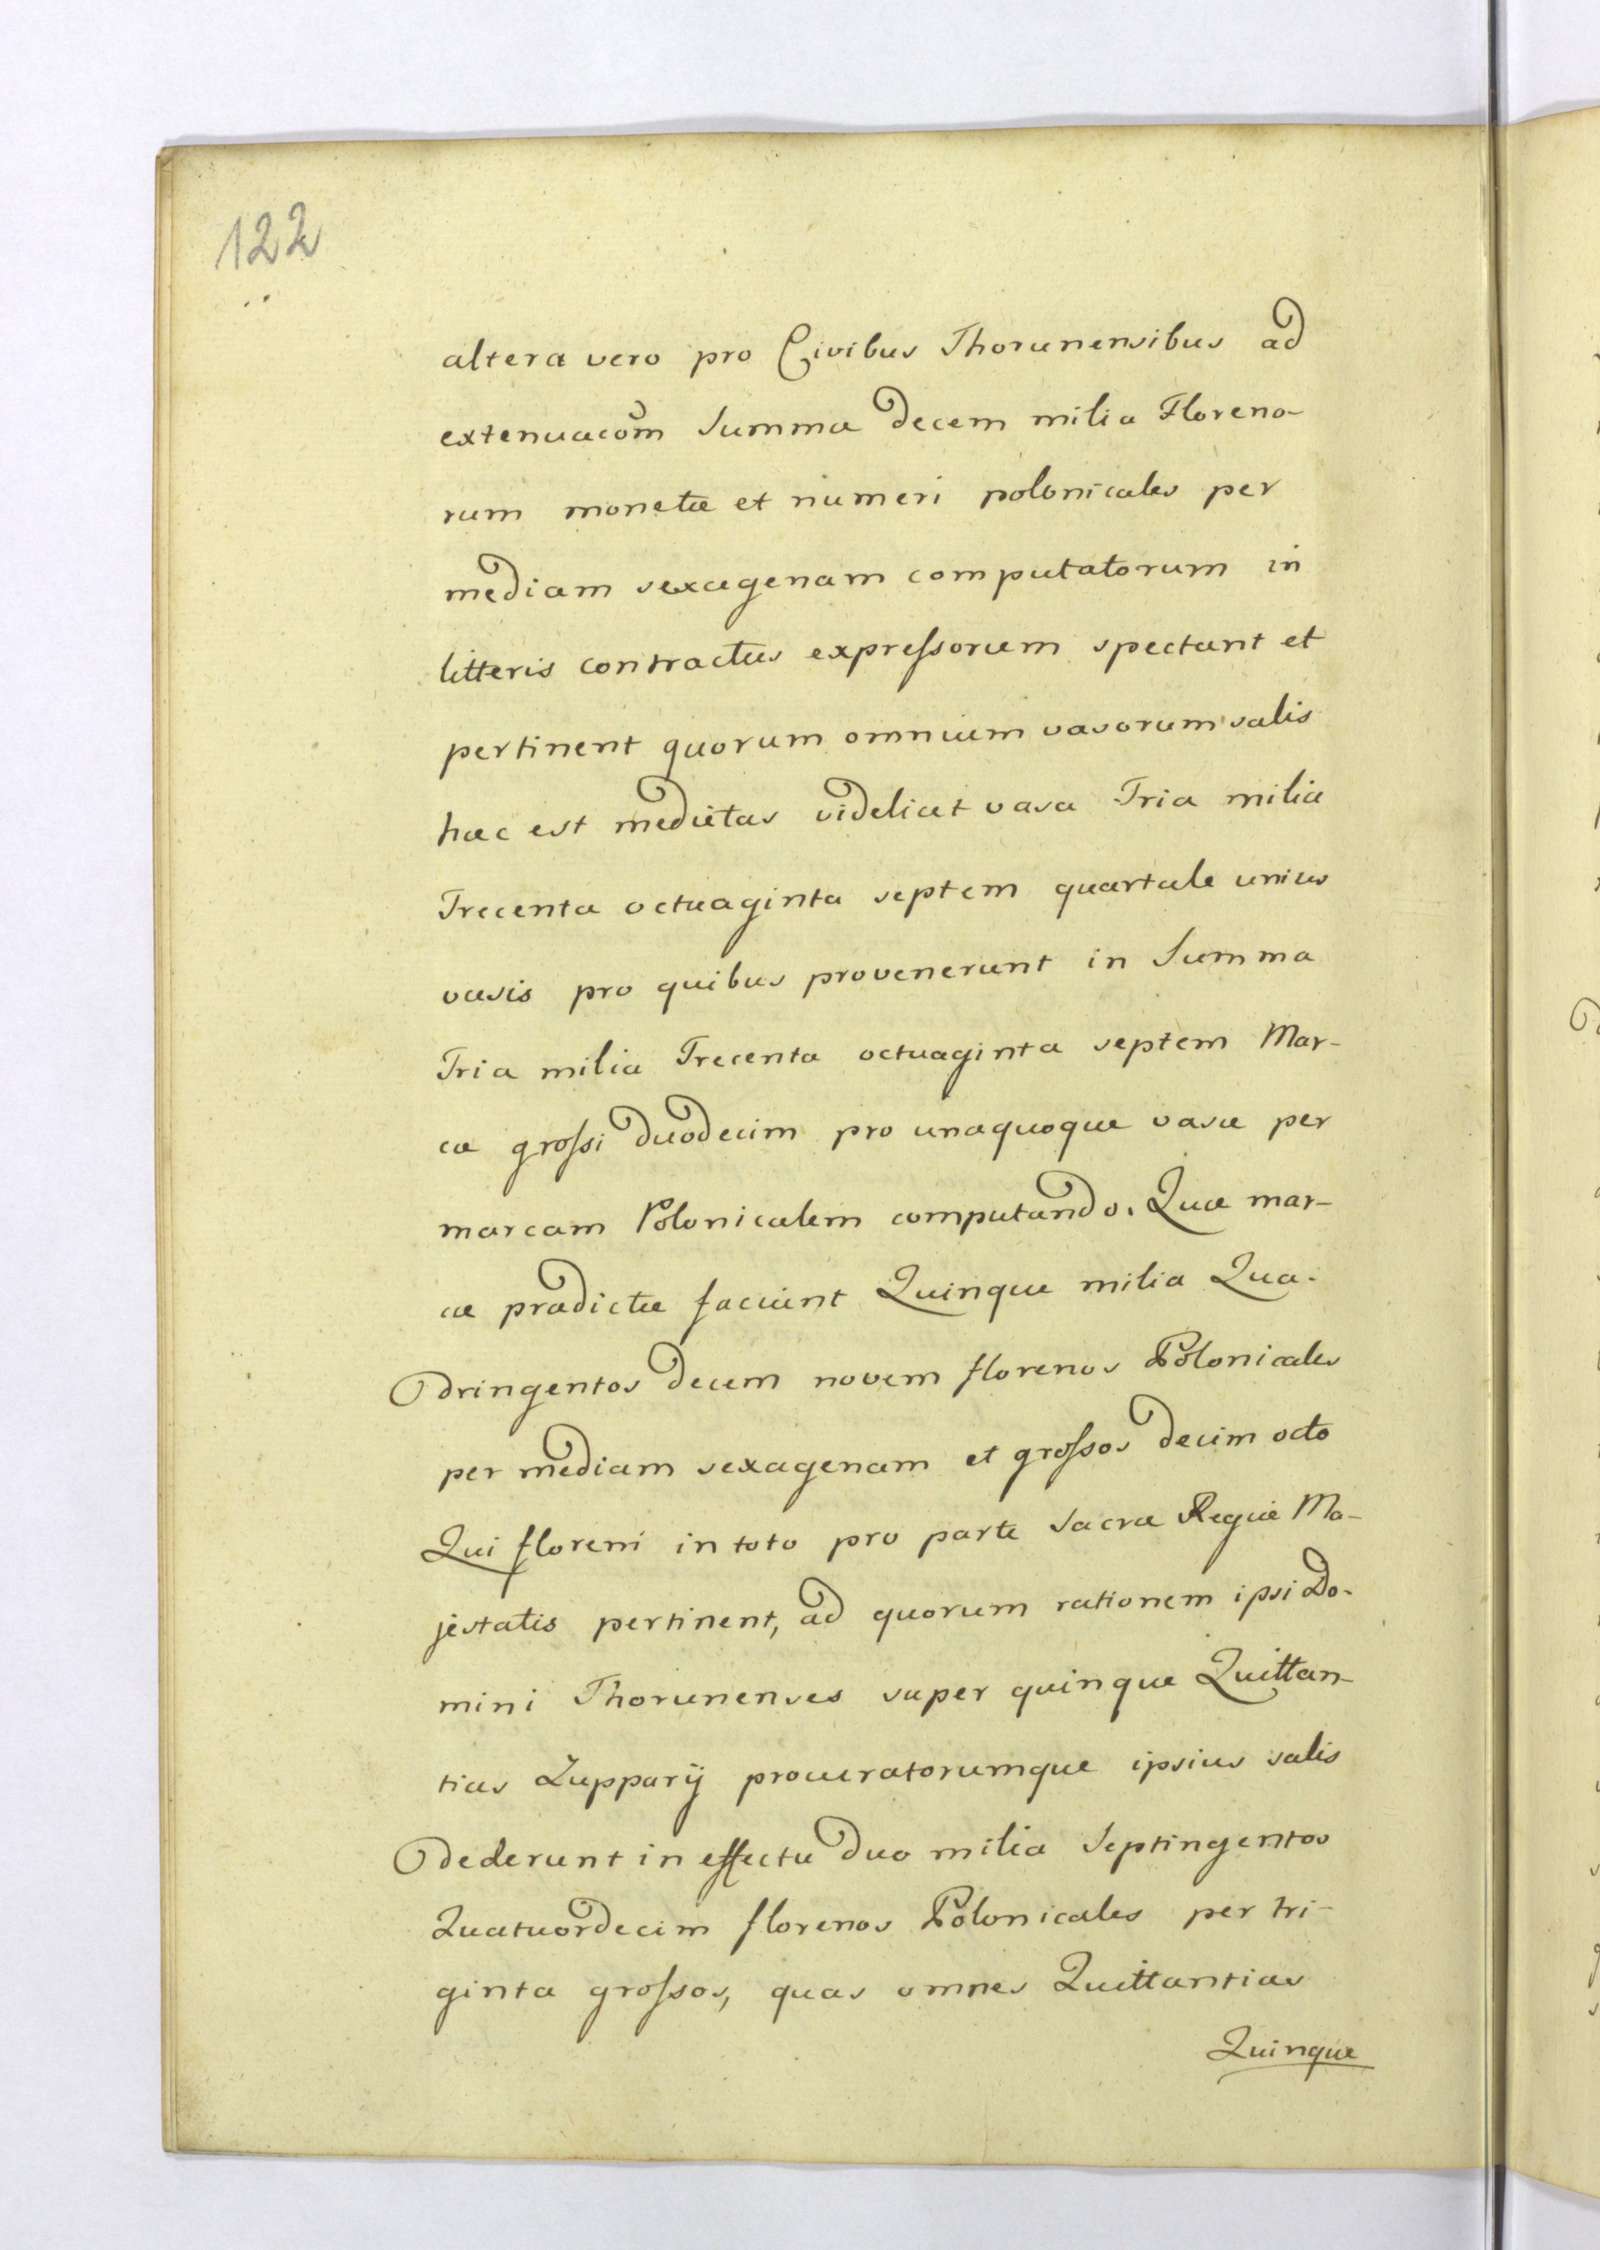 122
altera vero pro Civibus Thorunensibus ad
extenuacom̃ Summa decem milia Floreno-
rum monetæ et numeri polonicales per
mediam sexagenam computatorum in
litteris contractus expressorum spectant et
pertinent quorum omnium vasorum salis
hæc est medietas videlicet vasa Tria milia
Trecenta octuaginta septem quartale unius
vasis pro quibus provenerunt in Summa
Tria milia Trecenta octuaginta septem Mar-
cæ grossi duodecim pro unaquoque vase per
marcam Polonicalem computando. Quæ mar-
cæ prædictæ faciunt Quinque milia Qua-
dringentos decem novem florenos Polonicales
per mediam sexagenam et grossos decim octo
Qui floreni in toto pro parte Sacræ Regiæ Ma-
jestatis pertinent, ad quorum rationem ipsi Do-
mini Thorunenses super quinque Quittan-
tias Zupparij procuratorumque ipsius salis
dederunt in effectu duo milia Septingentos
Quatuordecim florenos Polonicales per tri-
ginta grossos, quas omnes Quittantias
Quinque